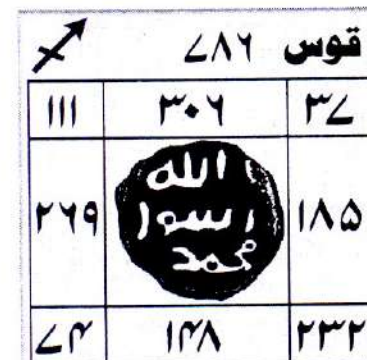 قوس ۷۸۶
۳۷ ۳۰۶ ۱۱۱
۱۸۵ ۲۶۹
الله
رسول
محمد
۲۳۲ ۱۴۸ ۷۴